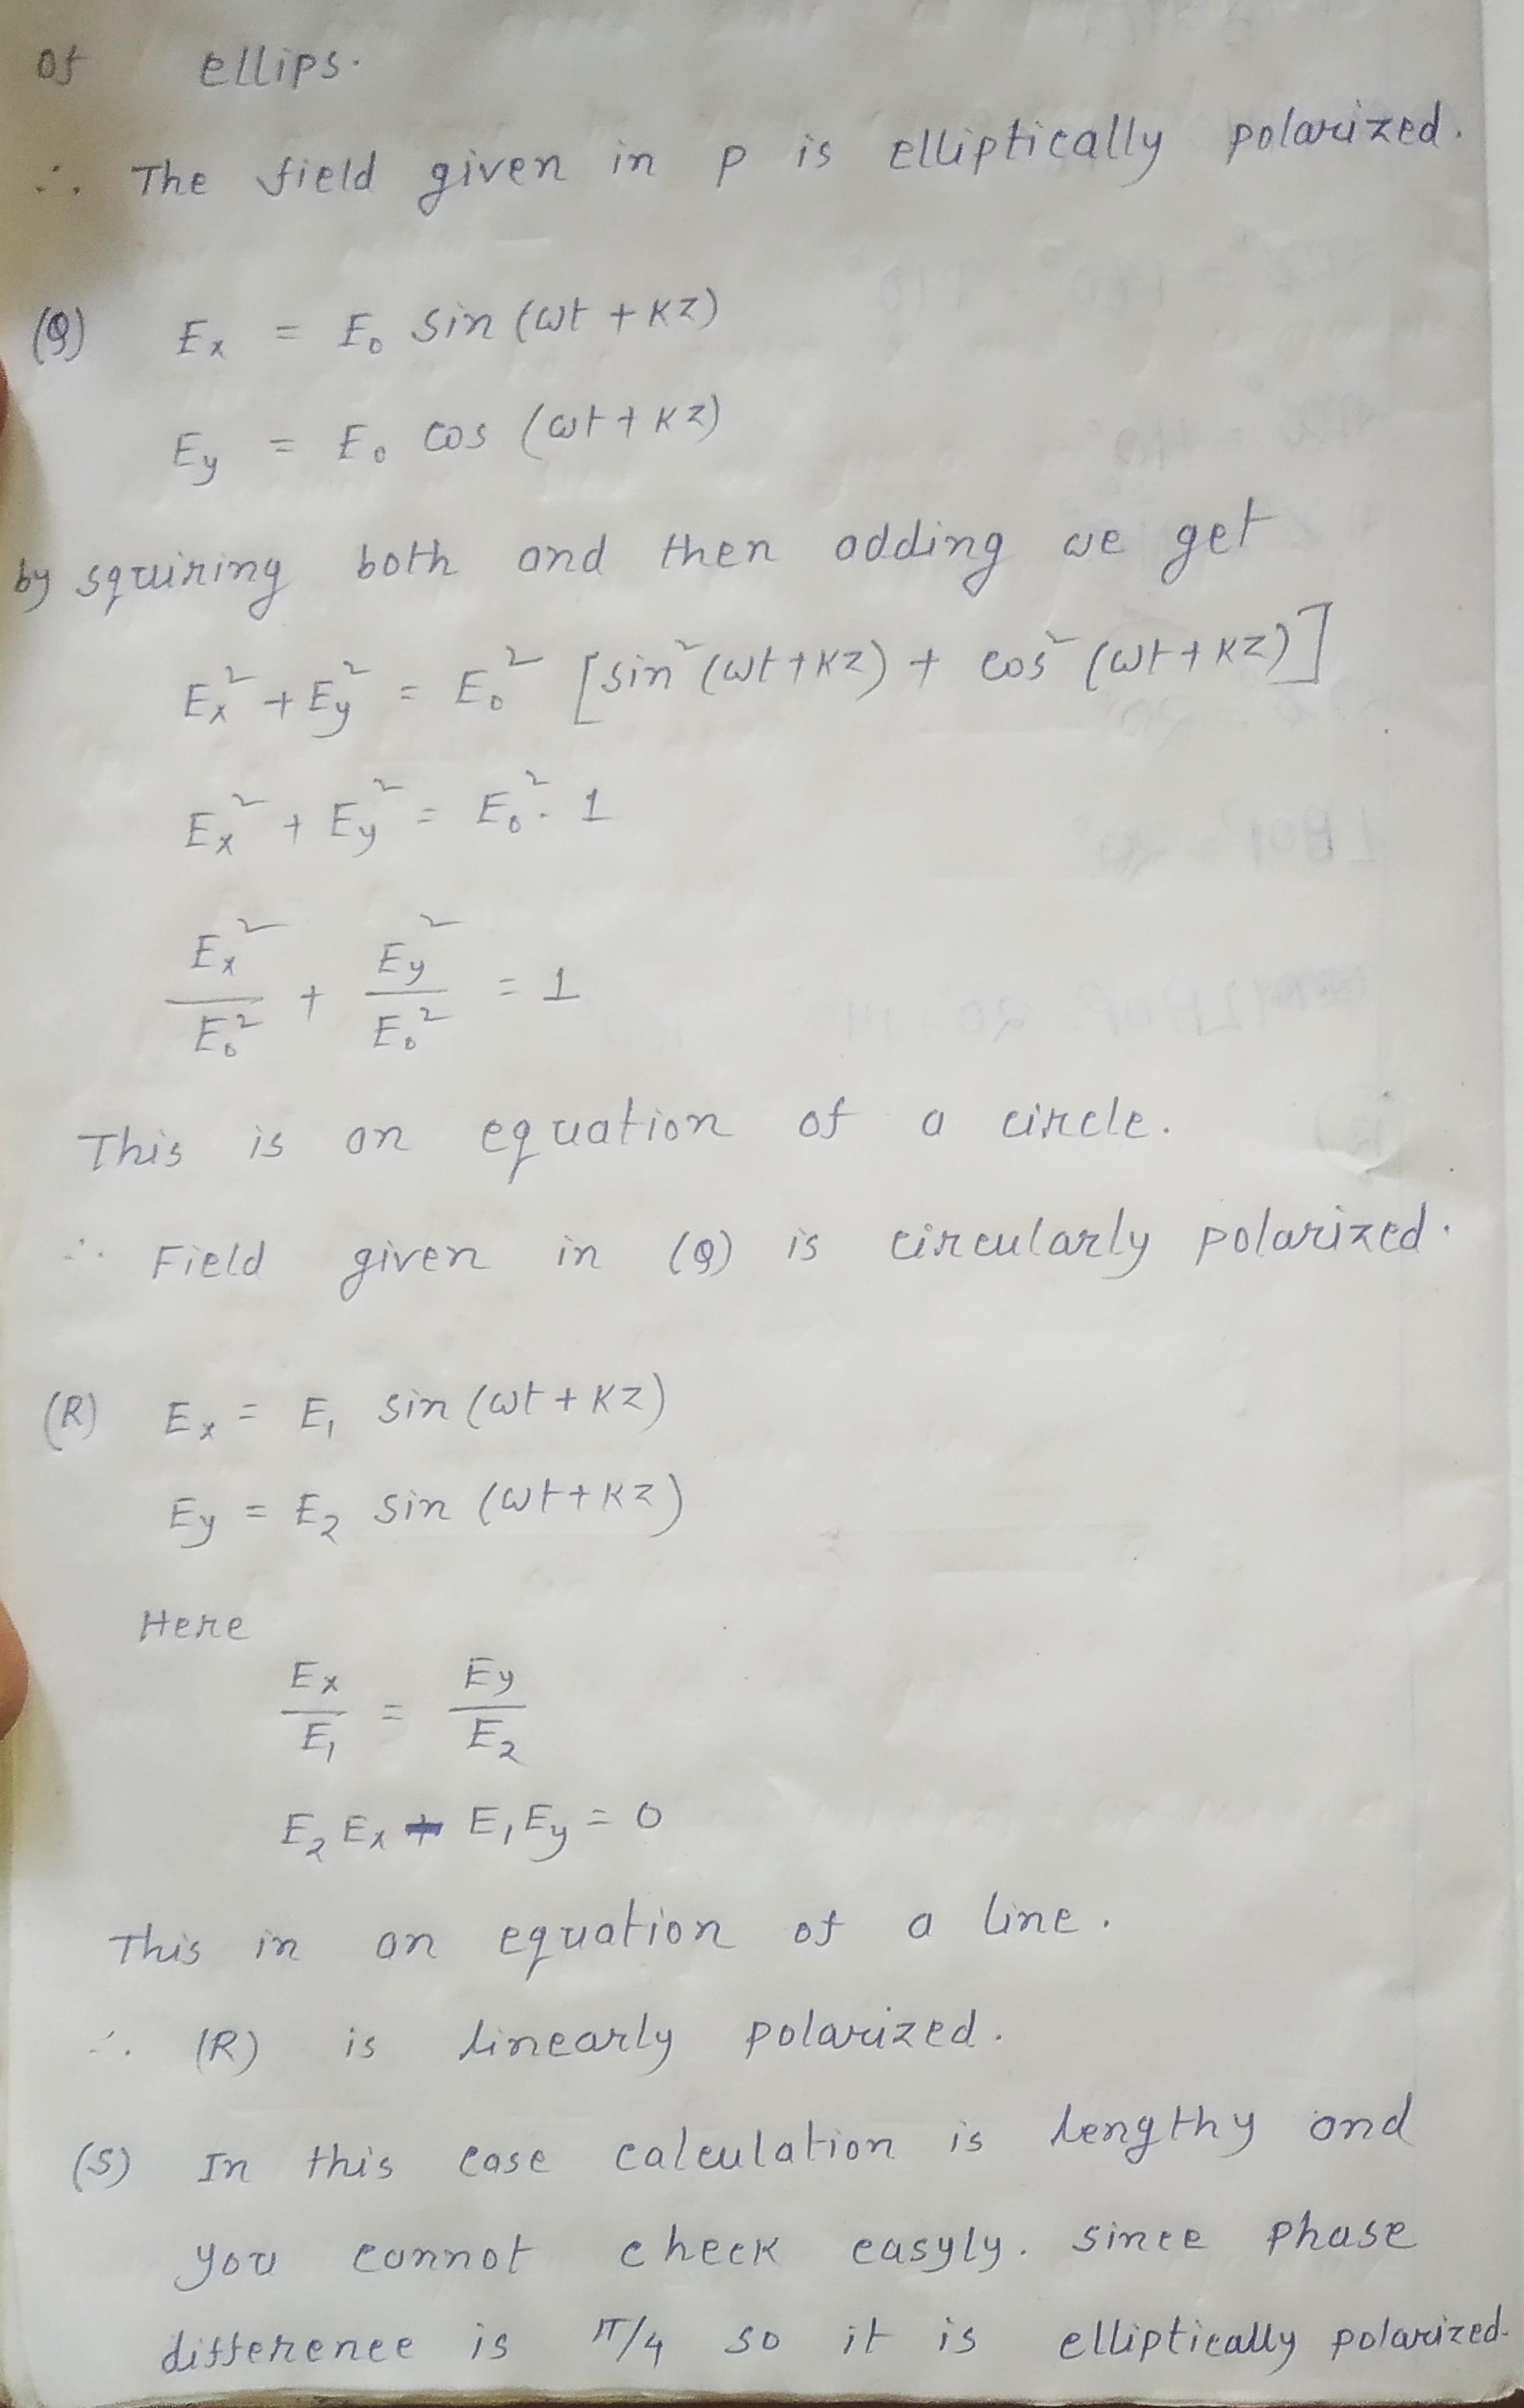 of ellips.
∴ The field given in p is elliptically polarized.
(Q) Ex = E₀ sin (ωt + kz)
Ey = E₀ cos (ωt + kz)
by squiring both and then adding we get
Ex² + Ey² = E₀² [sin² (ωt + kz) + cos² (ωt + kz)]
Ex² + Ey² = E₀² . 1
Ex²/E₀² + Ey²/E₀² = 1
This is an equation of a circle.
∴ Field given in (Q) is circularly polarized.
(R) Ex = E₁ sin (ωt + kz)
Ey = E₂ sin (ωt + kz)
Here
Ex/E₁ = Ey/E₂
E₂ Ex - E₁ Ey = 0
This in an equation of a line.
∴ (R) is linearly polarized.
(S) In this case calculation is lengthy and
you cannot check easyly. since phase
difference is π/4 so it is elliptically polarized.